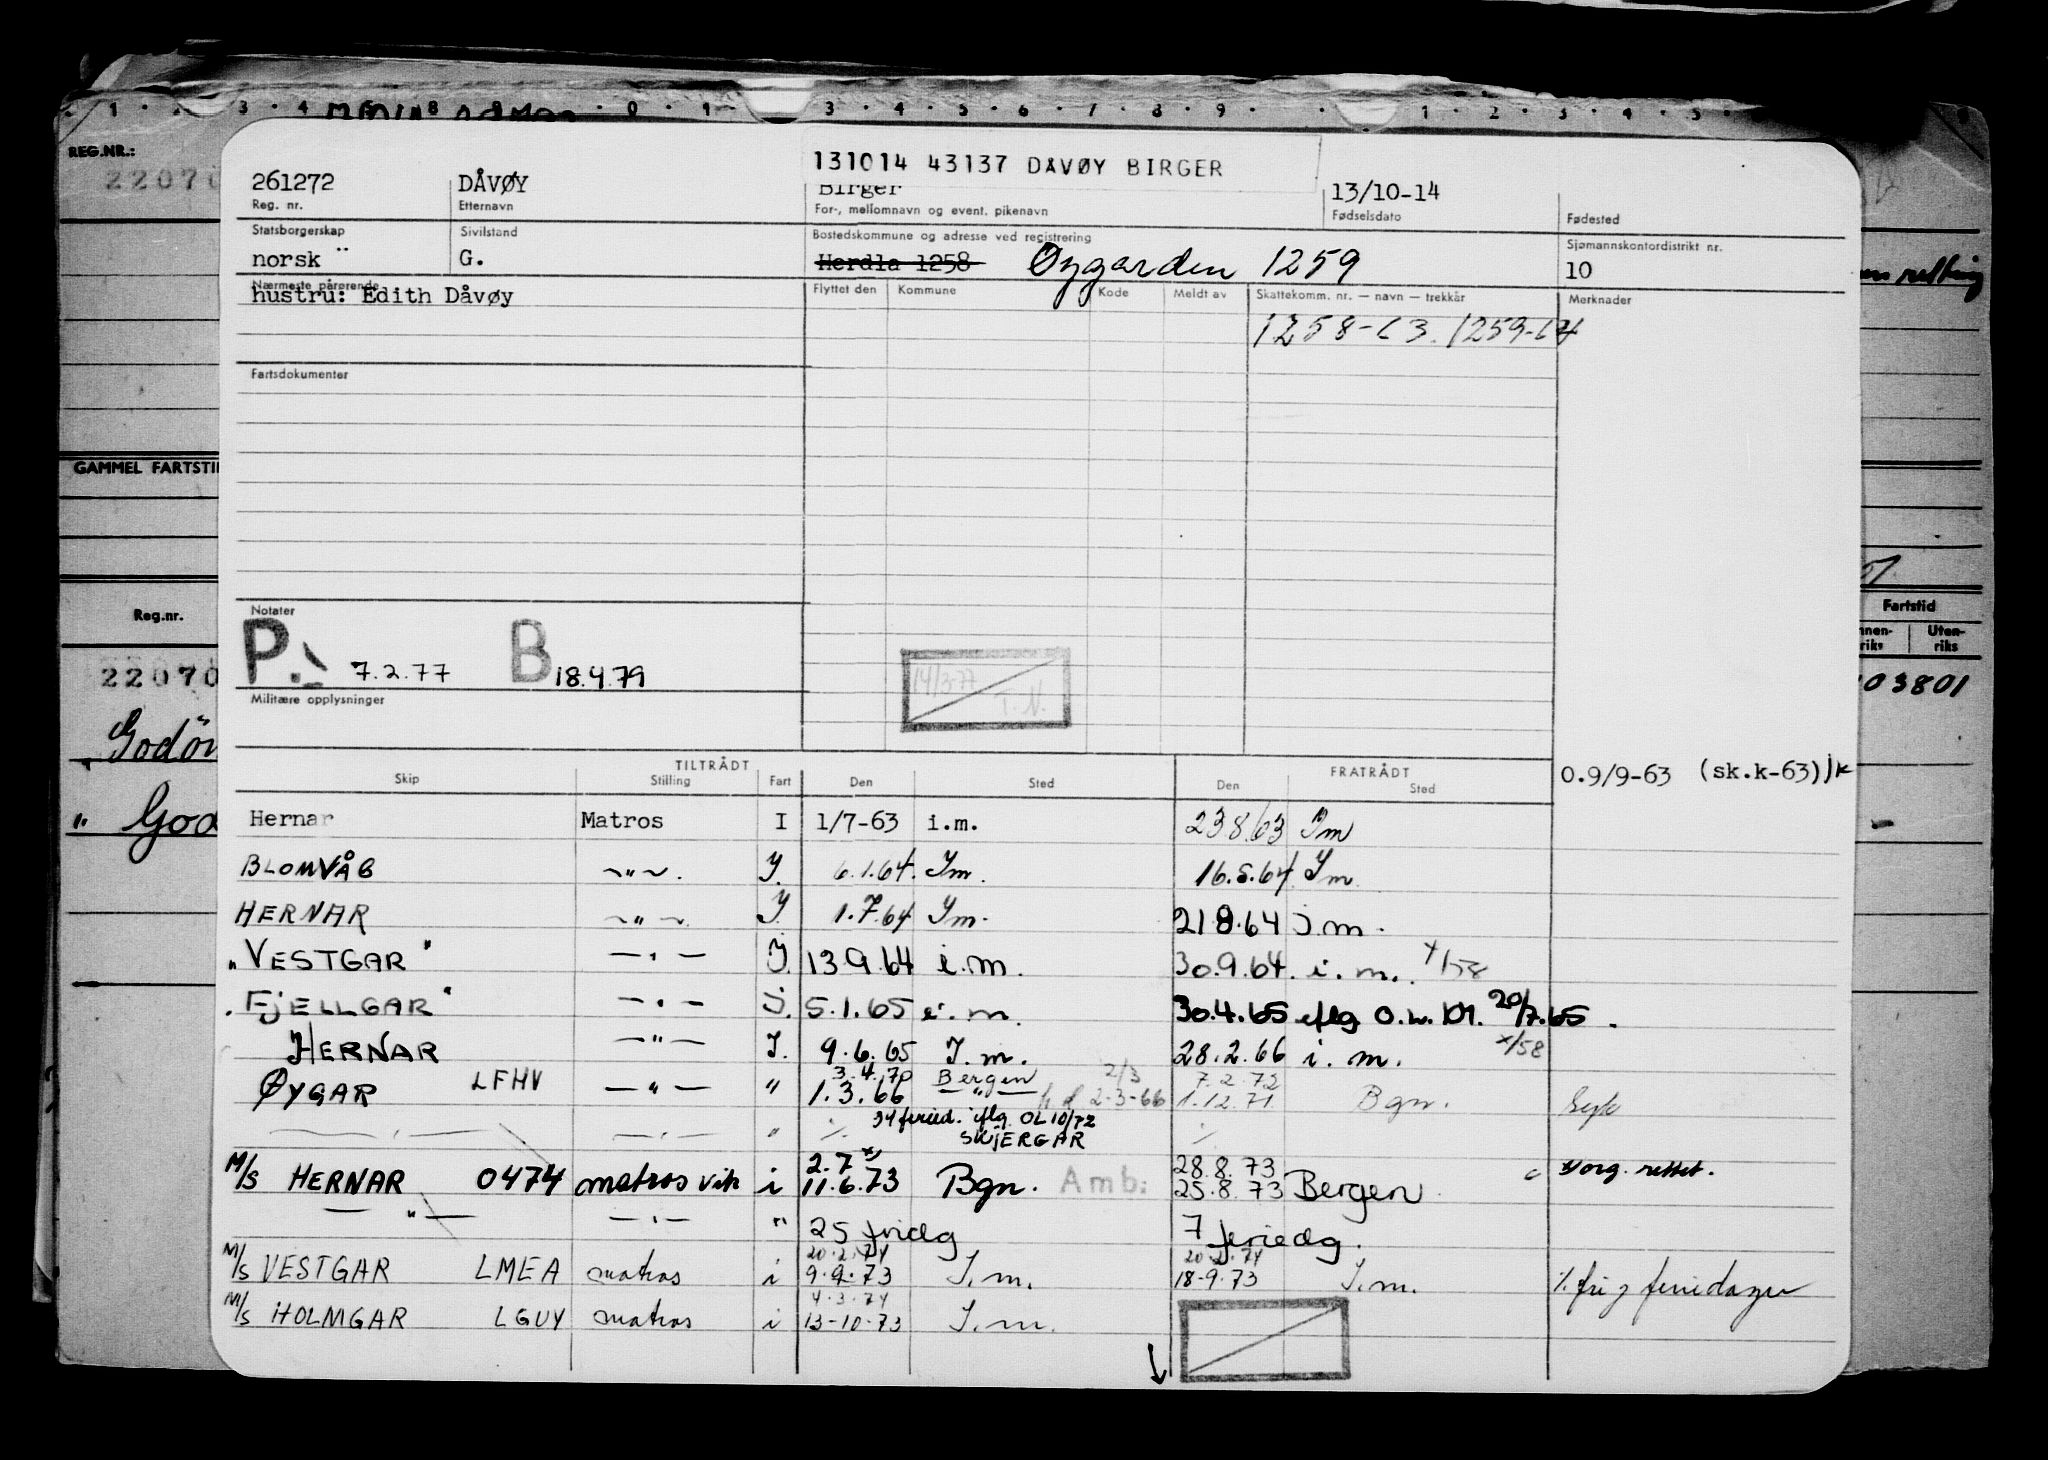 REG.NR.:
22070
131014 43137 DÅVØY BIRGER
261272 DÅVØY Birger 13/10-14
Reg. nr. Etternavn For-, mellomnavn og event. pikenavn Fødselsdato Fødested
Statsborgerskap Sivilstand Bostedskommune og adresse ved registrering Sjømannskontordistrikt nr.
norsk G. Herdla 1258 Øygarden 1259 10
Nærmeste pårørende Flyttet den Kommune Kode Meldt av Skattekomm. nr. — navn — trekkår Merknader
hustru: Edith Dåvøy
1258-63. 1259-64
Fartsdokumenter
GAMMEL FARTSTI
Notater
P. 7.2.77 B 18.4.79
14/3 77 T.N.
Militære opplysninger
Reg.nr.
22070
Fartstid
Uten-
riks
03801
TILTRÅDT FRATRÅDT
Skip Stilling Fart Den Sted Den Sted
0.9/9-63 (sk.k-63)jk
Hernar Matros I 1/7-63 i.m. 23.8.63 Im
BLOMVÅG —"—. I. 6.1.64. Im. 16.5.64. Im.
HERNAR —"—. I. 1.7.64 Im. 21.8.64 i.m.
"VESTGAR" —"— I. 13.9.64 i.m. 30.9.64. i.m. x/58
"FJELLGAR" —"— i. 5.1.65 i.m. 30.4.65 iflg O.L. M. 20/7.65.
HERNAR —"— I. 9.6.65 I.m. 28.2.66 i.m. x/58
3.4.70 Bergen 2/3 7.2.72
ØYGAR LFHV —"— " 1.3.66 —"— 2-3-66 1.12.71 Bgn. Syk
34 feried. iflg. OL 10/72
SKJERGAR
2.7 x) 28.8.73
M/S HERNAR 0474 matros vik i 11.6.73 Bgn. Amb. 25.8.73 Bergen x) org. rettet.
—"— —"— " 25 fridg 7 feriedg.
20.2.74 20.2.74
M/S VESTGAR LMEA matros i 9.9.73 I.m. 18-9.73 I.m. % fri 7 feriedager
4.3.74
M/S HOLMGAR LGUY matros i 13-10-73 I.m.